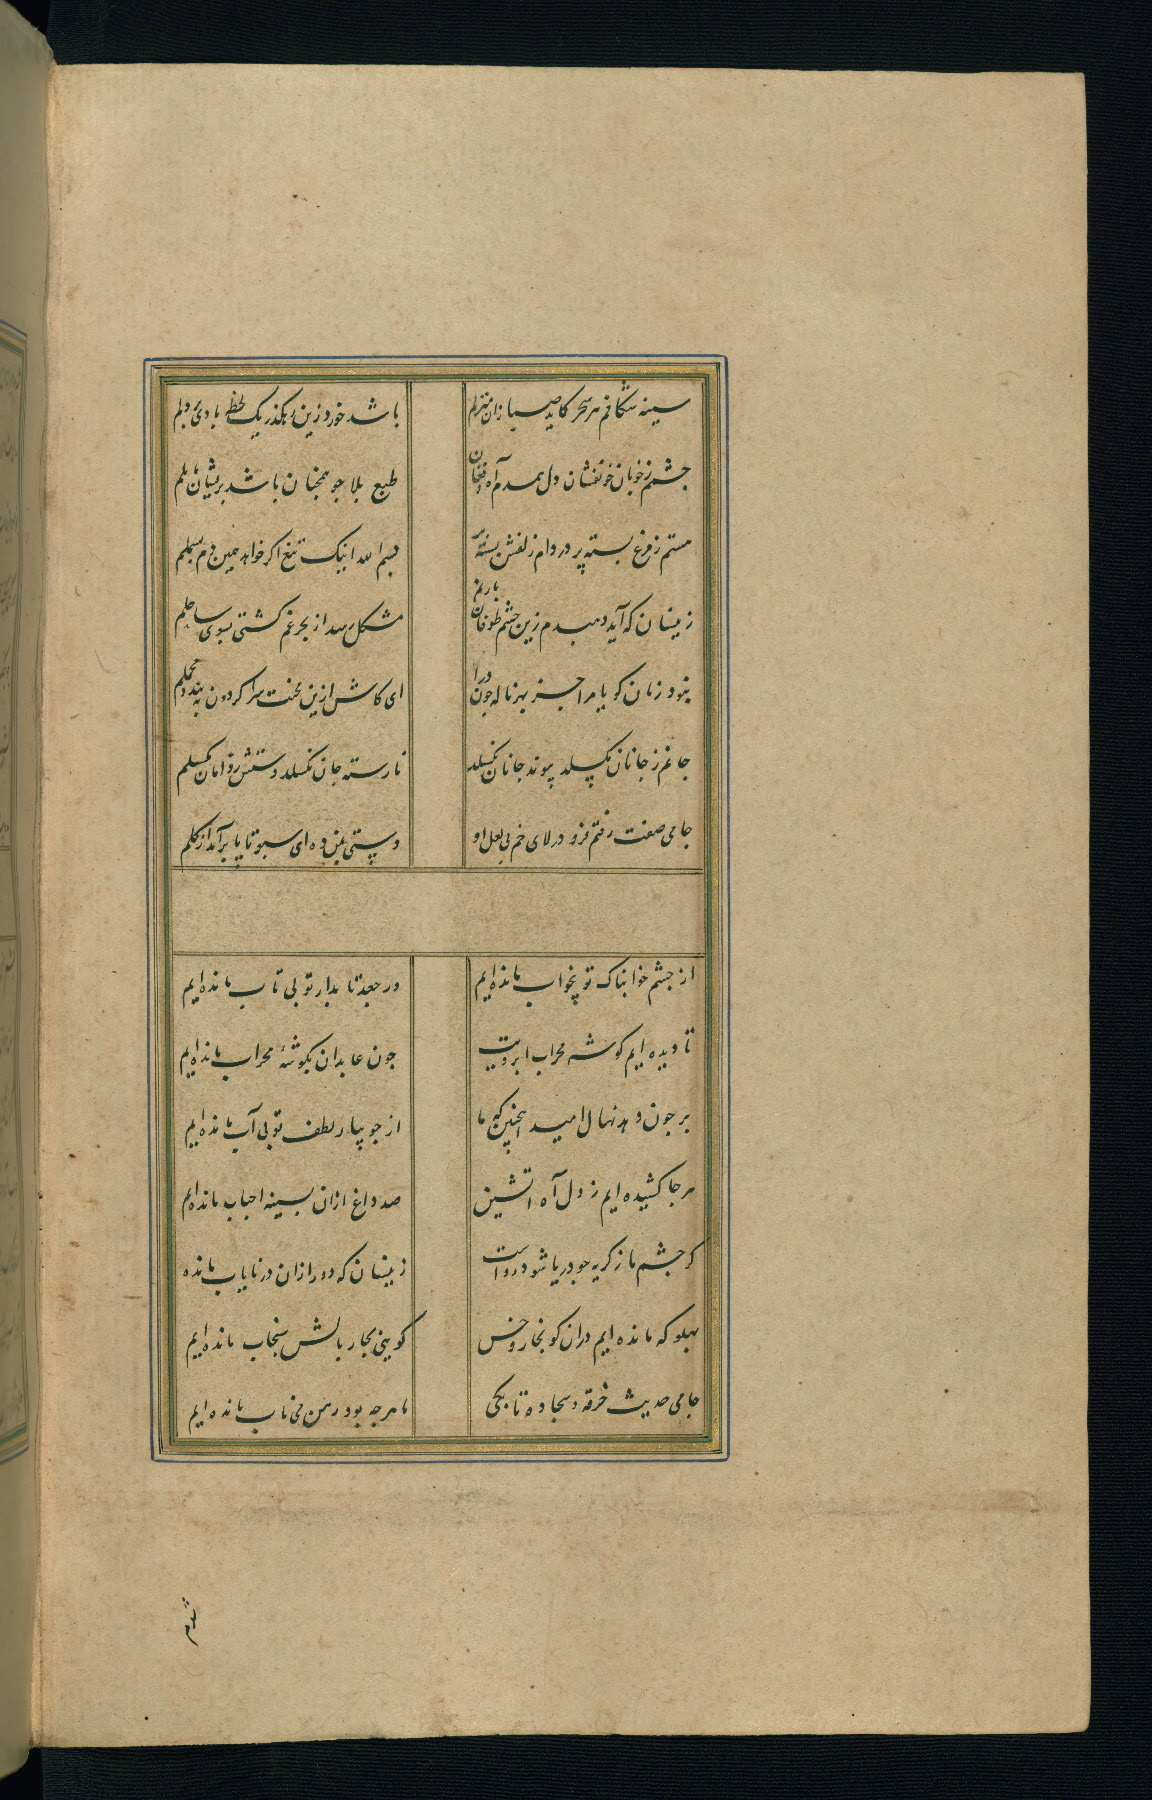 سینه شکافم هر سحر کاید صبا زان منزلم
باشد خورد زین رهگذر یک لحظه بادی بر دلم
چشمم ز خوبان خونفشان دل همدم آه و فغان
طبع بلا جو همچنان باشد بریشان مایلم
هستم ز مرغ بسته پر در دام زلفش بسته تر
بسم الله اینک تیغ اگر خواهد همین دم بسملم
زینسان که آید دمبدم زین چشم طوفان بار نم
مشکل رسد از بحر غم کشتی بسوی ساحلم
نبود زمان کویا مرا جز بهر ناله چون درا
ای کاش ازین محنت سرا کردون به بندد محملم
جانم ز جانان نکسلد پیوند جانان نکسلد
تا رسته جان نکسلد دستش ز دامان نکسلم
جامی صفت رفتم فرو در لای خم بی لعل او
دستی بمن ده ای سبو تا پا برآمد از کلم
از جشم خوابناک تو بیخواب مانده ایم
ور جعد تابدار تو بی تاب مانده ایم
تا دیده ایم کوشه محراب ابرویت
جون عابدان بکوشه محراب مانده ایم
بر جون دهد نهال امید اینچنین که ما
از جویبار لطف تو بی آب مانده ایم
هر جا کشیده ایم ز دل آه اتشین
صد داغ ازان بسینه احباب مانده ایم
کر جشم ما ز کریه جو دریا شود رواست
زینسان که دور ازان در نایاب مانده
بهلو که مانده ایم دران کو بخار و خس
کویی بجار بالش سنجاب مانده ایم
جامی حدیث خرقه و سجاده تا بکی
ما هرجه بود رهن می ناب مانده ایم